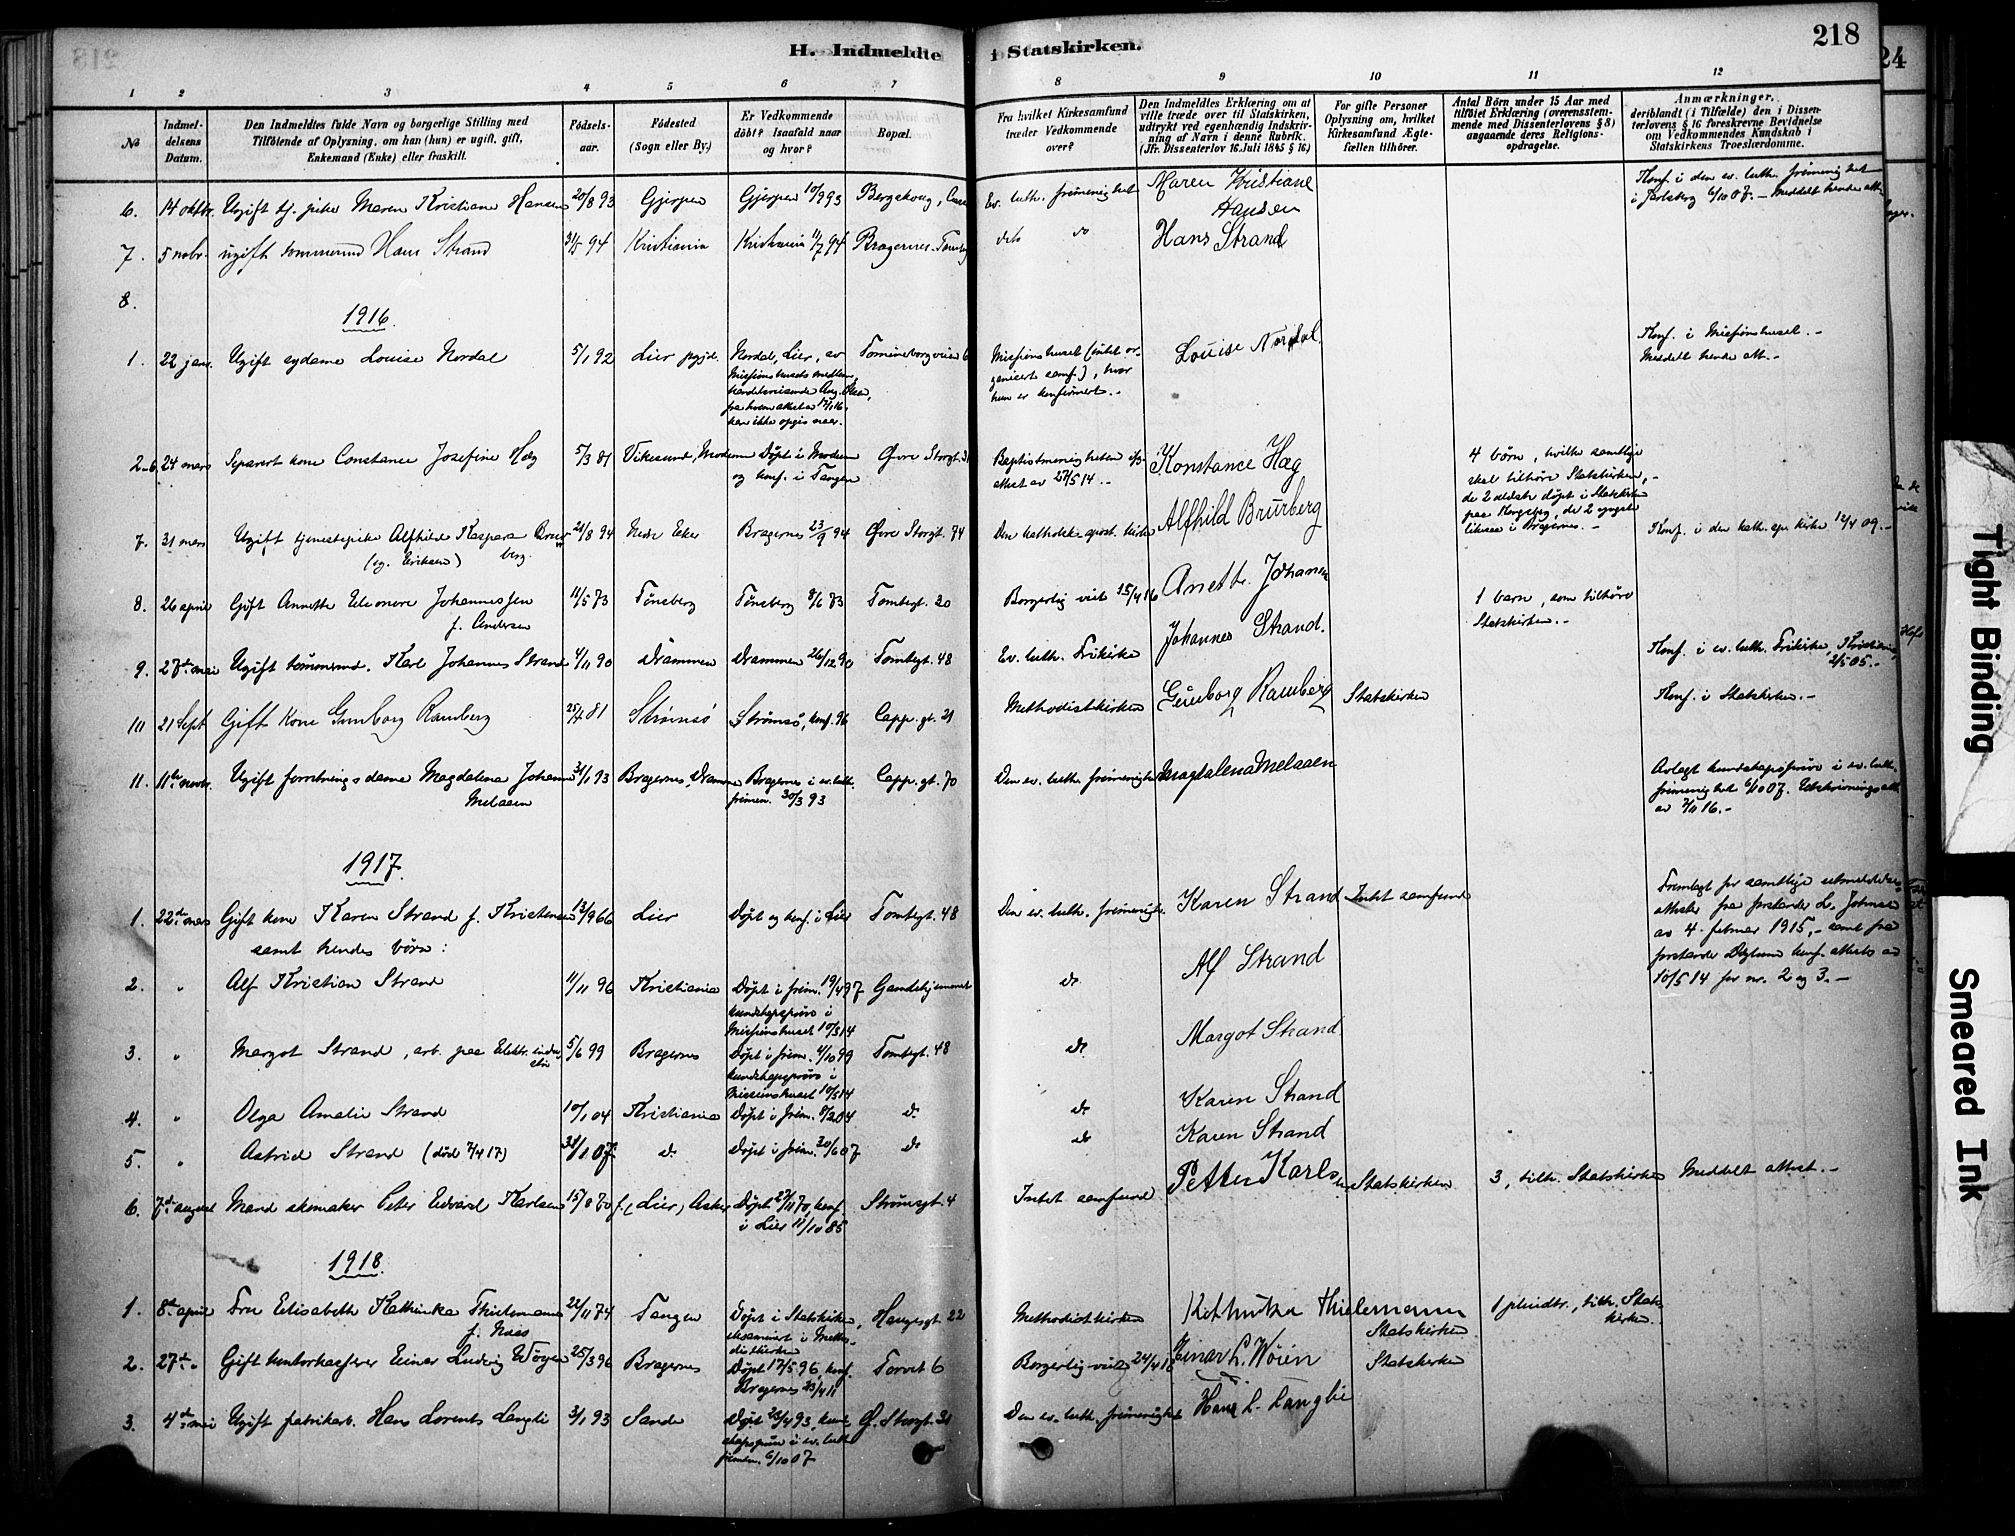 H. Indmeldte i Statskirken.
218
24
1 2 3 4 5 6 7 8 9 10 11 12
No
Indmeldelsens Datum.
Den Indmeldtes fulde Navn og borgerlige Stilling med
Tilföiende af Oplysning, om han (hun) er ugift, gift,
Enkemand (Enke) eller fraskilt.
Födselsaar.
Födested
(Sogn eller By.)
Er Vedkommende
döbt? Isaafald naar
og hvor?
Bopæl.
Fra hvilket Kirkesamfund
træder Vedkommende
over?
Den Indmeldtes Erklæring om at
ville træde over til Statskirken,
udtrykt ved egenhændig Indskrivning
af Navn i denne Rubrik.
(Jfr. Dissenterlov 16. Juli 1845 § 16)
For gifte Personer
Oplysning om, hvilket
Kirkesamfund Ægtefællen
tilhörer.
Antal Börn under 15 Aar med
tilföiet Erklæring (overensstemmende
med Dissenterlovens § 8)
angaaende deres Religionsopdragelse.
Anmærkninger,
deriblandt (i Tilfælde) den i Dissenterlovens
§ 16 foreskrevne Bevidnelse
om Vedkommendes Kundskab i
Statskirkens Troeslærdomme.
6. 14 oktbr. Ugift tj. pike Maren Kristiane Hansen 20/8 93 Gjerpen Gjerpen 10/9 93 Ev. luth. frimenighet Maren Kristiane Hansen Konf. i den ev. luth. frimenighet i Jarlsberg 6/10 07. - Meddelt hende att.
7. 5 nobr. ugift tømmermd Hans Strand 31/5 94 Kristiania Kristiania 11/7 94 Bragernes. Tomtegt do Hans Strand
8.
1916.
1. 22 janr. Ugift sydame Louise Nordal 5/1 92 Lier pgjd. Nordal, Lier, av Missionshusets medlem Missionshuset (intet organisert samf.), hvor hun er konfirmert. - Louise Nordal. Konf. i Missionshuset. - Meddelt hende att. -
2-6 24 mars Separert kone Constance Josefine Hæg 5/3 81 Vikesund, Modum Døpt i Modum og konf. i Tangen Øvre Storgt. 31 Baptistmenigheten attest av 27/5 14. - Konstance Hæg 4 børn, hvilke samtlige skal tilhøre Statskirken, - de 2 ældste døpt i Statskirken paa Kongsberg, de 2 yngste likesaa i Bragernes. -
7. 31 mars Ugift tjenestepike Alfhild Kaspara Brurberg (eg. Eriksen) 21/8 94 Nedre Eker Bragernes 23/9 94 Øvre Storgt. 74 Den katholsk-apost. kirke Alfhild Brurberg Konf. i den kath. ap. kirke 12/4 09. -
8. 26 april Gift Annette Eleonore Johannessen f. Andersen 11/5 73 Tønsberg Tønsberg 8/6 73 Tomtegt. 20 Borgerlig viet 15/4 16 Anette Johansen 1 barn, som tilhører Statskirken. -
9. 27de mai Ugift tømmermd. Karl Johannes Strand 4/11 90 Drammen Drammen 26/12 90 Tomtegt. 48 Ev. luth. Frikirke Johannes Strand. Konf. i ev. luth. Frikirke, Kristiania, 2/5 05. -
10 21 Sept Gift kone Gunborg Ramberg 25/4 81 Strømsø Strømsø, konf. 96 Capp. gt. 21 Methodistkirken Gunborg Ramberg Statskirken Konf. i Statskirken. -
11. 11te novbr. Ugift forretningsdame Magdalena Johanne Melaaen 31/1 93 Bragernes, Drammen Bragernes i ev. luth. frimen. 30/3 93 Capp. gt. 70 Den ev. luth. frimenighet Magdalena Melaaen Avlagt kundskapsprøve i ev. luth. frimenighet 6/10 07. Utskrivningsatt. av 7/11 16. -
1917.
1. 22de mars Gift kone Karen Strand f. Kristensen 13/9 66 Lier Døpt og konf. i Lier Tomtegt. 48 Den ev. luth. frimenigh. Karen Strand Intet samfund Fremlagt for samtlige utmeldelsesattester fra forstander L. Johnsen av 4. februar 1915, - samt fra forstander konf. attester av 10/5 14 for nr. 2 og 3. -
samt hendes børn:
2. " Alf Kristian Strand 11/11 96 Kristiania Døpt i frim. 19/4 97 kundskapsprøve i Missionshuset 10/5 14 do Alf Strand
3. " Margot Strand, arb. paa Elektr. industri 5/6 99 Bragernes Døpt i frim. 1/10 99 kundskapsprøve i Missionshuset 10/5 14 Tomtegt. 48 do Margot Strand
4. " Olga Amalie Strand 10/1 04 Kristiania Døpt i frim. 8/2 04 do do Karen Strand
5. " Astrid Strand (død 7/4 17) 31/1 07 do Døpt i frim. 30/6 07 do do Karen Strand
6. 7de august Mand skomaker Peter Edvard Karlsen 15/8 70 f. (Lier) Asker Døpt 27/11 70, konf. i Lier 11/10 85 Strømsgt. 4 Intet samfund Petter Karlsen Statskirken 3, tilh. Statskirken Meddelt attest. -
1918.
1. 8de april Fru Elisabeth Kathinka Thielemann f. Næss 22/11 74 Tangen Døpt i Statskirken, eksaminert i Methodistkirken Haugesgt. 22 Methodistkirken Kathinka Thielemann Statskirken 1 pleiedtr., tilh. Statskirken
2. 27de " Gift kontorkasserer Einar Ludvig Wøyen 25/3 96 Bragernes Døpt 17/5 96, konf. Bragernes 23/4 11 Torvet 6 Borgerlig viet 24/4 18 Einar L. Wöien Statskirken
3. 4de mai Ugift fabrikarb. Hans Lorents Langli 3/1 93 Sande Døpt 23/4 93, kundskapsprøve i ev. luth. frimen. 6/10 07 Ø. Storgt. 31 Den ev. luth. frimenighet Hans L. Langlie
Tight Binding
Smeared Ink